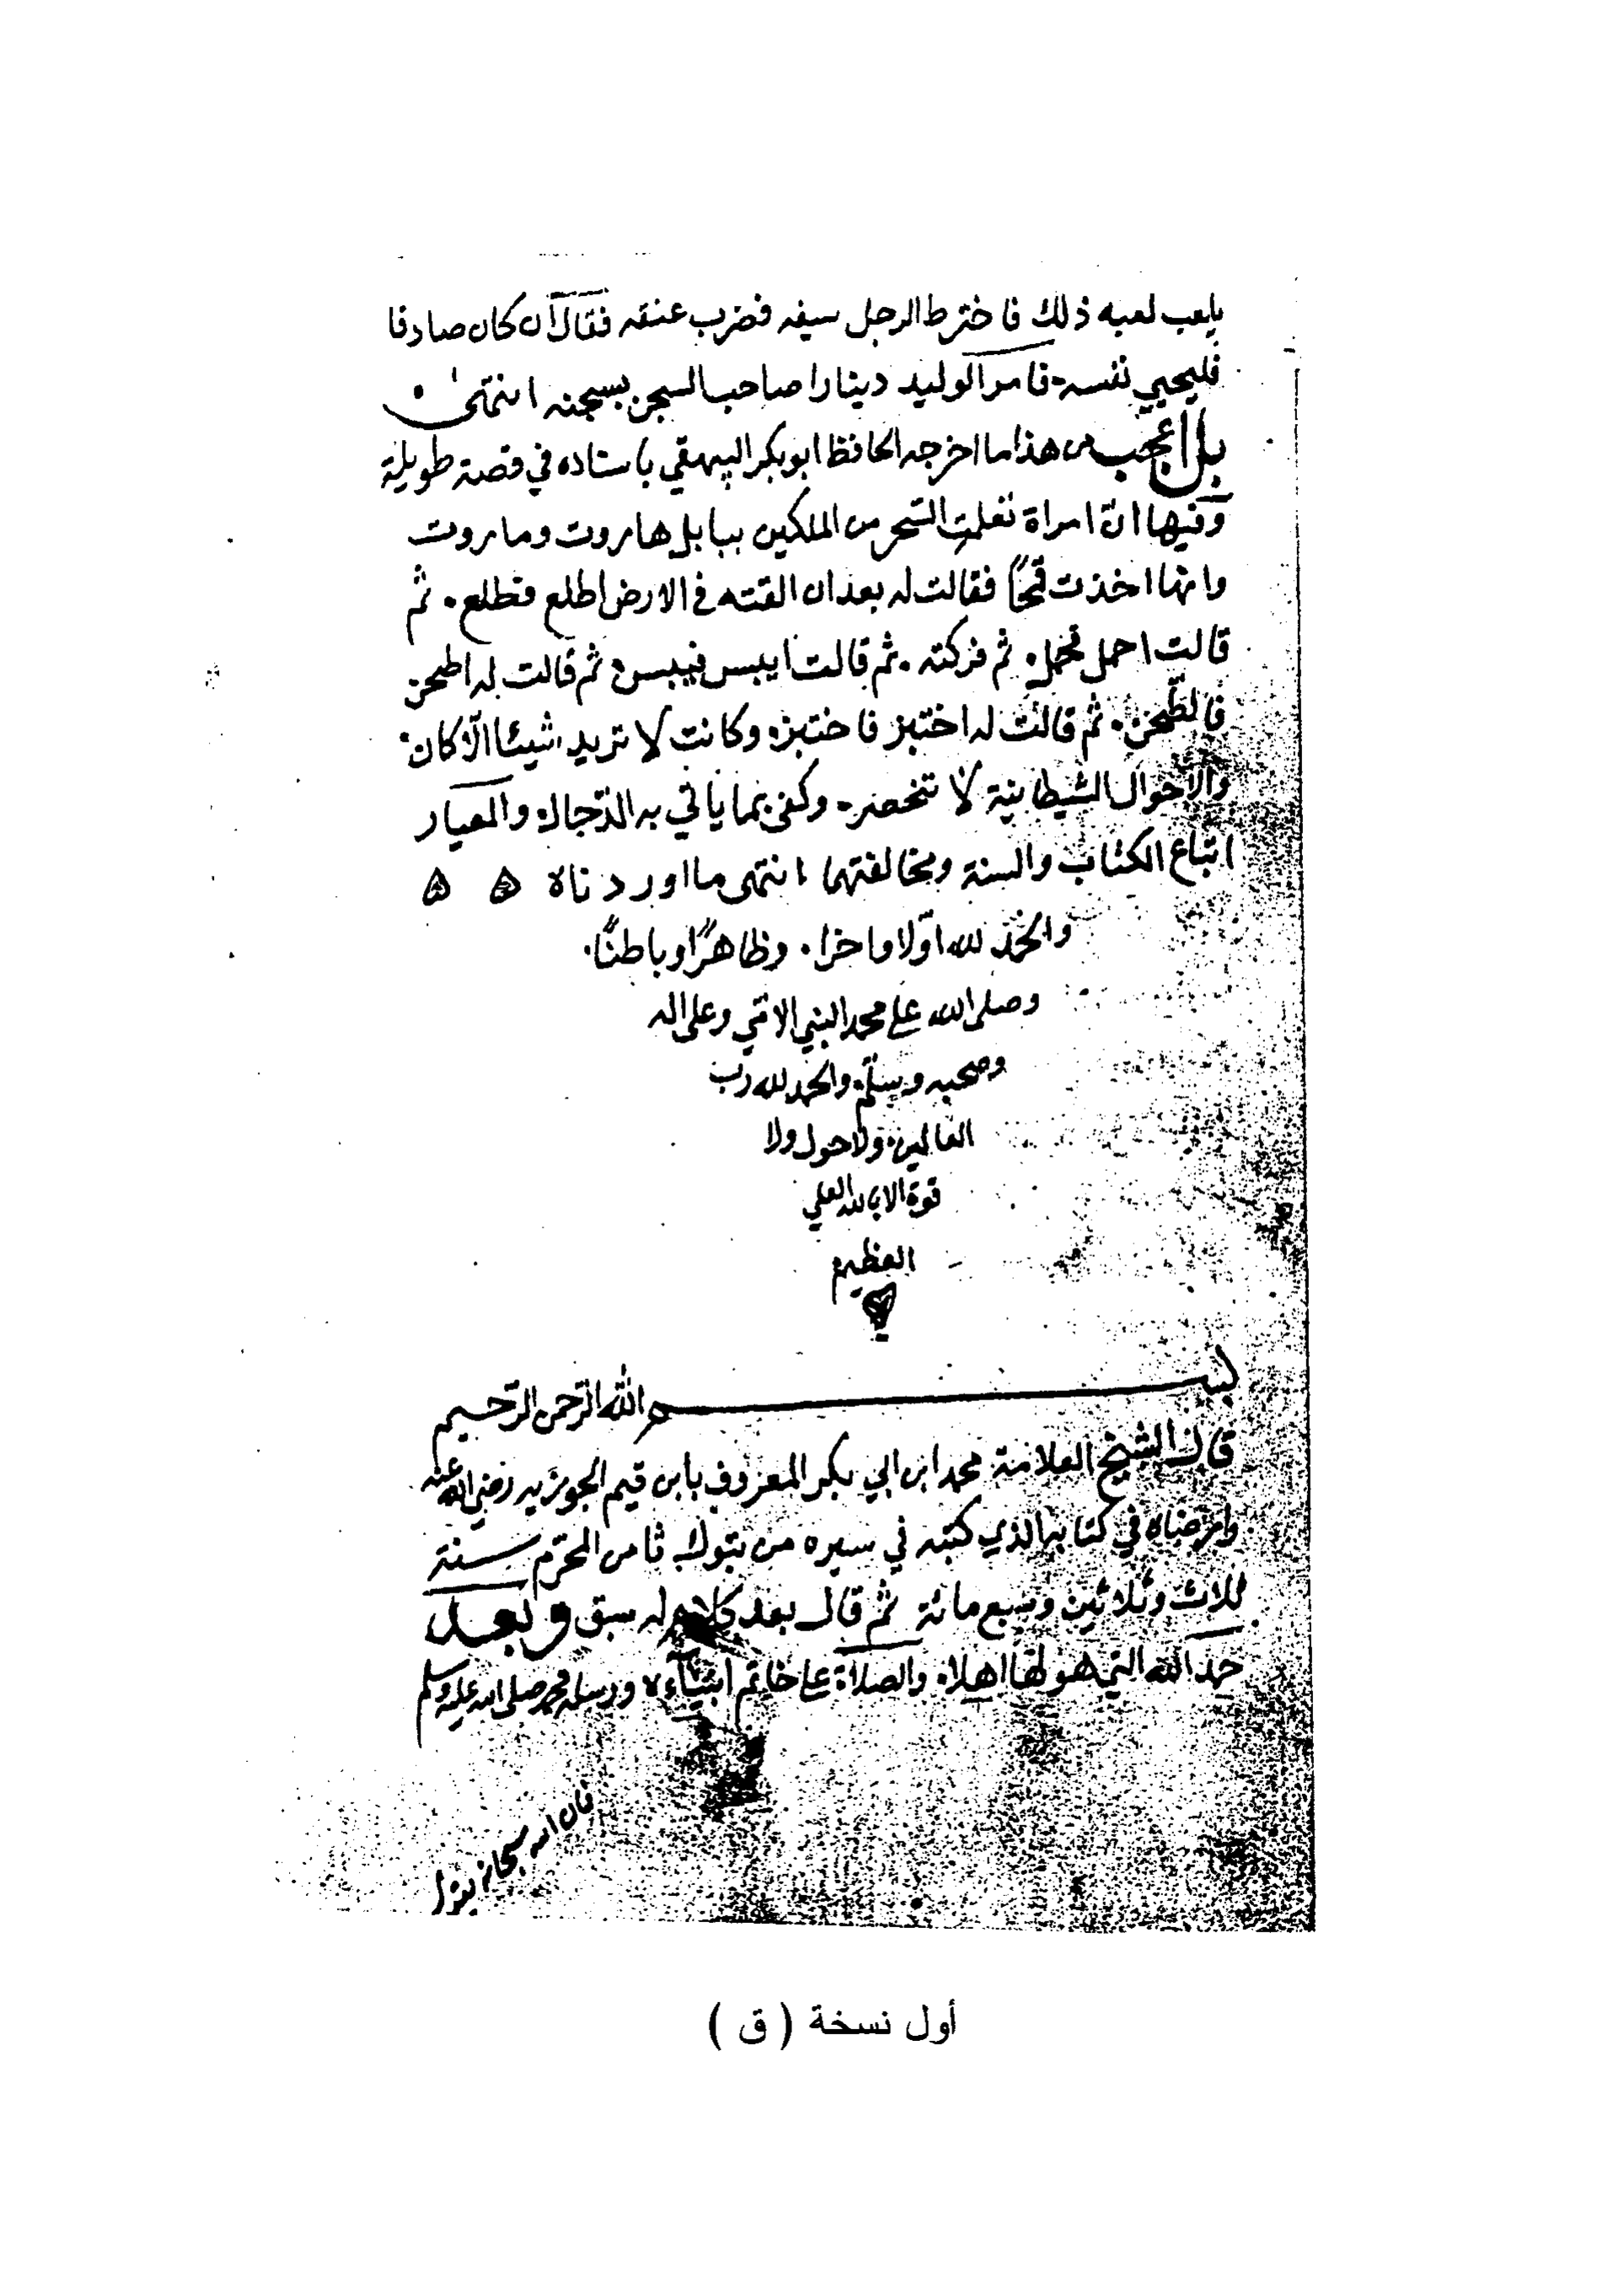 يلعب لعبه ذلك فاخترط الرجل سيفه فضرب عنقه فقال ان كان صادقا
فليحيي نفسه. فامر الوليد دينارا صاحب السجن بسجنه انتهى.
بل اعجب من هذا ما اخرجه الحافظ ابو بكر البيهقي باسناده في قصة طويلة
وفيها ان امراة تعلمت السحر من الملكين ببابل هاروت وماروت
وانها اخذت قمحًا فقالت له بعد ان القته في الارض اطلع فطلع. ثم
قالت احمل فحمل. ثم فركته. ثم قالت ايبس فيبس. ثم قالت له اطحن
فاطحن. ثم قالت له اختبز فاختبز. وكانت لا تريد شيئا الا كان.
والاحوال الشيطانية لا تنحصر. وكفى بما ياتي به الدجال. والمعيار
اتباع الكتاب والسنة ومخالفتهما انتهى ما اوردناه ه ه
والحمد لله اولا واخرا. وظاهرًا وباطنًا.
وصلى الله على محمد النبي الامي وعلى اله
وصحبه وسلم. والحمد لله رب
العالمين. ولا حول ولا
قوة الا بالله العلي
العظيم
بسم الله الرحمن الرحيم
قال الشيخ العلامة محمد ابن ابي بكر المعروف بابن قيم الجوزيه رضي الله عنه
وارضاه في كتابه الذي كتبه في سيره من تبوك ثامن المحرم سنة
ثلاث وثلاثين وسبع مائة ثم قال بعد كلام له سبق وبعد
حمد الله التي هو لها اهلا. والصلاة على خاتم انبيآءه ورسله محمد صلى الله عليه وسلم
فان الله سبحانه يقول
أول نسخة ( ق )